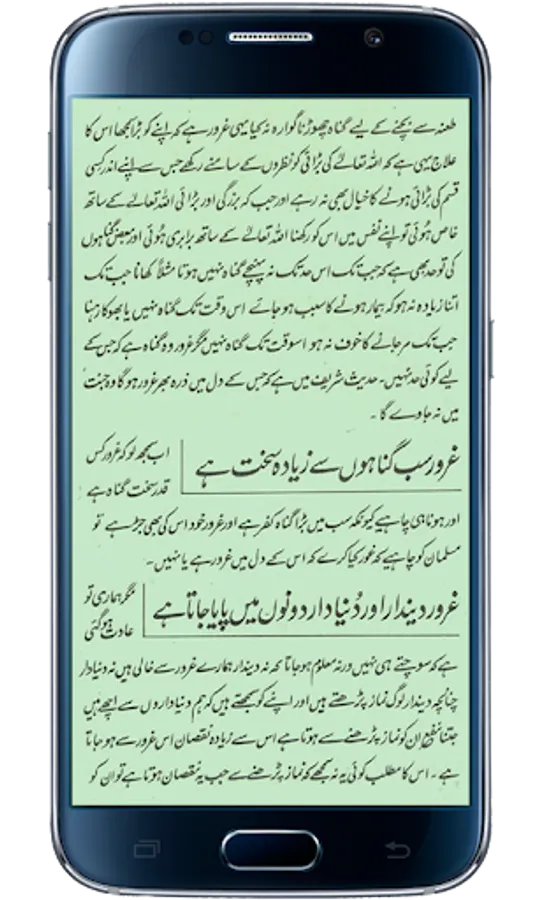 طعنہ سے بچنے کے لیے گناہ چھوڑنا گوارہ نہ کیا یہی غرور ہے کہ اپنے کو بڑا سمجھا اس کا
علاج یہی ہے کہ اللہ تعالےٰ کی بڑائی کو نظروں کے سامنے رکھے جس سے اپنے اندر کسی
قسم کی بڑائی ہونے کا خیال بھی نہ رہے اور جب کہ بزرگی اور بڑائی اللہ تعالےٰ کے ساتھ
خاص ہوئی تو اپنے نفس میں اس کو رکھنا اللہ تعالےٰ کے ساتھ برابری ہوئی اور بعض گناہوں
کی تو حد بھی ہے کہ جب تک اس حد تک نہ پہنچے گناہ نہیں ہوتا مثلاً کھانا جب تک
اتنا زیادہ نہ ہو کہ بیمار ہونے کا سبب ہو جائے اس وقت تک گناہ نہیں یا بھوکا رہنا
جب تک مر جانے کا خوف نہ ہو اسوقت تک گناہ نہیں مگر غرور وہ گناہ ہے کہ جس کے
لیے کوئی حد نہیں۔ حدیث شریف میں ہے کہ جس کے دل میں ذرہ بھر غرور ہو گا وہ جنت
میں نہ جاوے گا۔
غرور سب گناہوں سے زیادہ سخت ہے
اب سمجھ لو کہ غرور کس
قدر سخت گناہ ہے
اور ہونا ہی چاہیے کیونکہ سب میں بڑا گناہ کفر ہے اور غرور خود اس کی بھی جڑ ہے تو
مسلمان کو چاہیے کہ غور کیا کرے کہ اس کے دل میں غرور ہے یا نہیں۔
غرور دیندار اور دُنیا دار دونوں میں پایا جاتا ہے
مگر ہماری تو
عادت ہو گئی
ہے کہ سوچتے ہی نہیں ورنہ معلوم ہو جاتا کہ نہ دیندار ہمارے غرور سے خالی ہیں نہ دنیادار
چنانچہ دیندار لوگ نماز پڑھتے ہیں اور اپنے کو سمجھتے ہیں کہ ہم دنیا داروں سے اچھے ہیں
جتنا نفع ان کو نماز پڑھنے سے ہوتا ہے اس سے زیادہ نقصان اس غرور سے ہو جاتا
ہے۔ اس کا مطلب کوئی یہ نہ سمجھے کہ نماز پڑھنے سے جب یہ نقصان ہوتا ہے تو ان کو